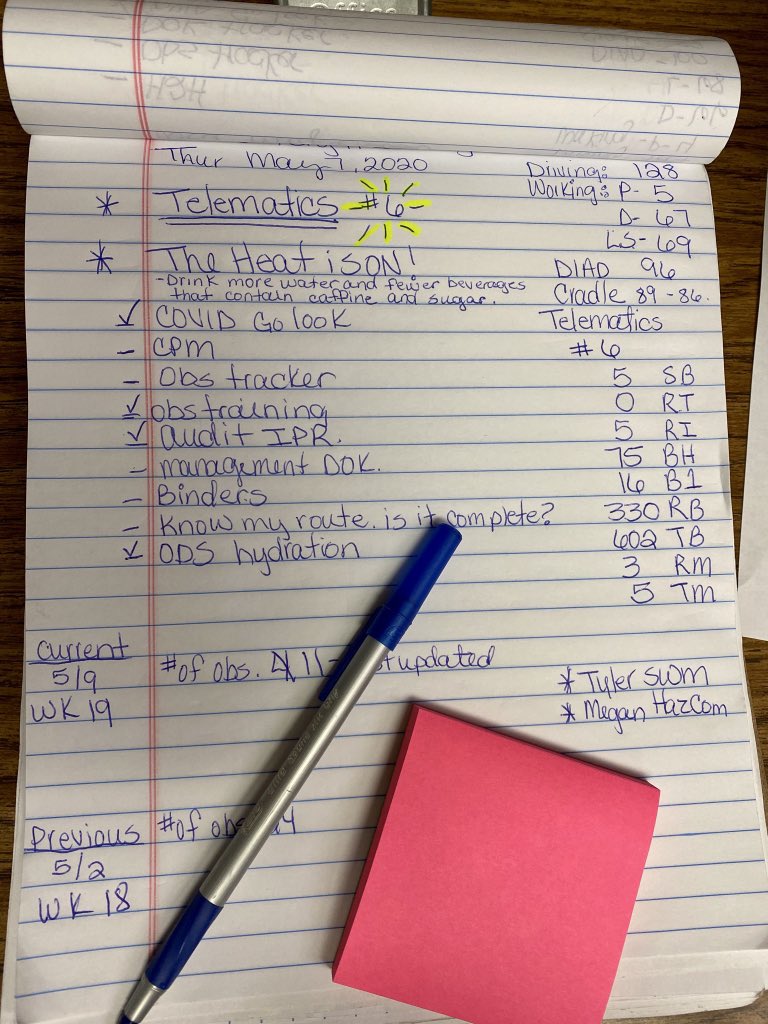 Office
Thur May 7, 2020
* Telematics #6
* The Heat is ON!
- Drink more water and fewer beverages
that contain caffine and sugar.
✓ COVID Go look
- CPM
- Obs tracker
✓ obs training
✓ audit IPR.
- management DOK.
- Binders
- Know my route. is it complete?
✓ ODS hydration
Driving: 128
Working: P- 5
D- 67
LS- 69
DIAD 96
Cradle 89 - 86.
Telematics
#6
5 SB
0 RT
5 RI
75 BH
16 B1
330 RB
602 TB
3 RM
5 TM
Current
5/9
WK 19
#of obs. 11 - updated
* Tyler SWM
* Megan HazCom
Previous
5/2
WK 18
#of obs